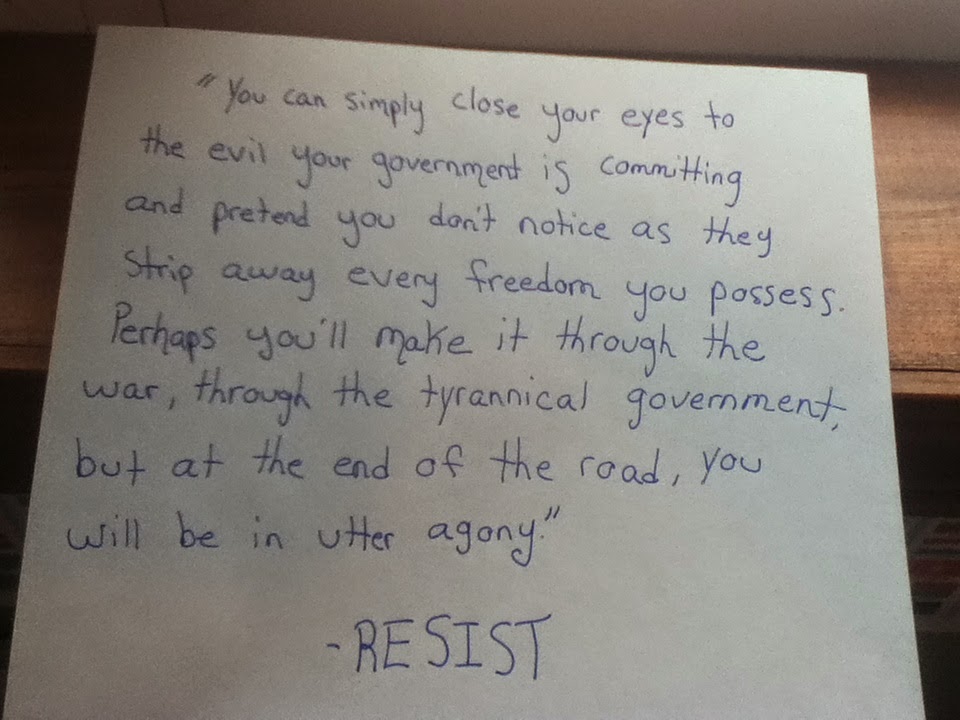 "You can simply close your eyes to
the evil your government is committing
and pretend you don't notice as they
strip away every freedom you possess.
Perhaps you'll make it through the
war, through the tyrannical government,
but at the end of the road, you
will be in utter agony."
-RESIST